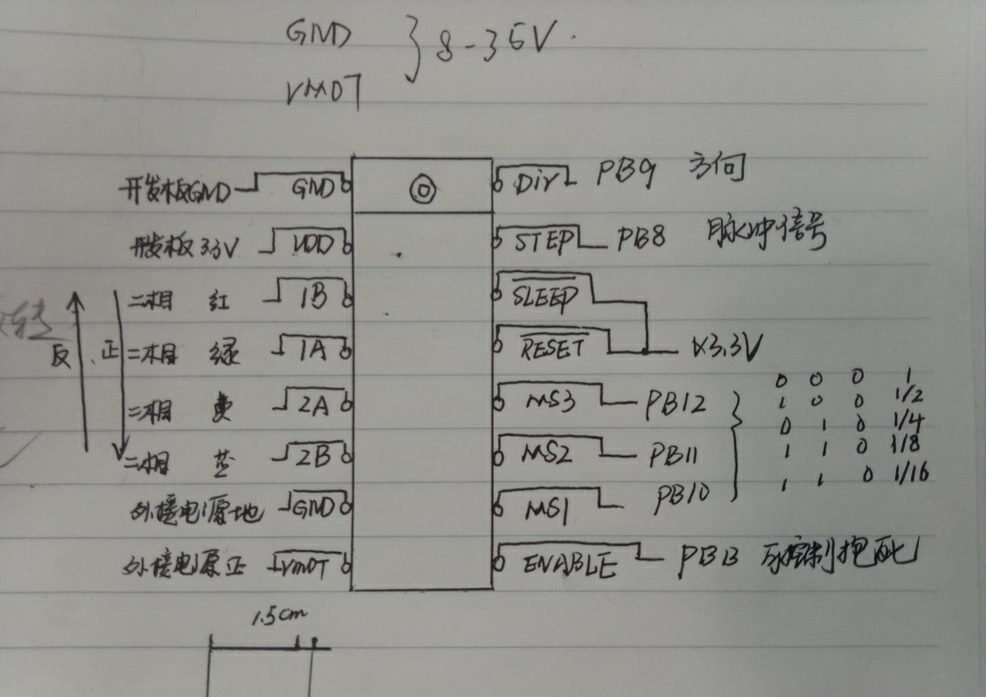 GND
VMOT
8-35V.
开发板GND GND DIr PB9 方向
开发板3.3V VDD STEP PB8 脉冲信号
二相 红 1B SLEEP
反 正 二相 绿 1A RESET 接3.3V
二相 黄 2A MS3 PB12
二相 蓝 2B MS2 PB11
外接电源地 GND MS1 PB10
外接电源正 VMOT ENABLE PB13
0 0 0 1
1 0 0 1/2
0 1 0 1/4
1 1 0 1/8
1 1 0 1/16
1.5cm